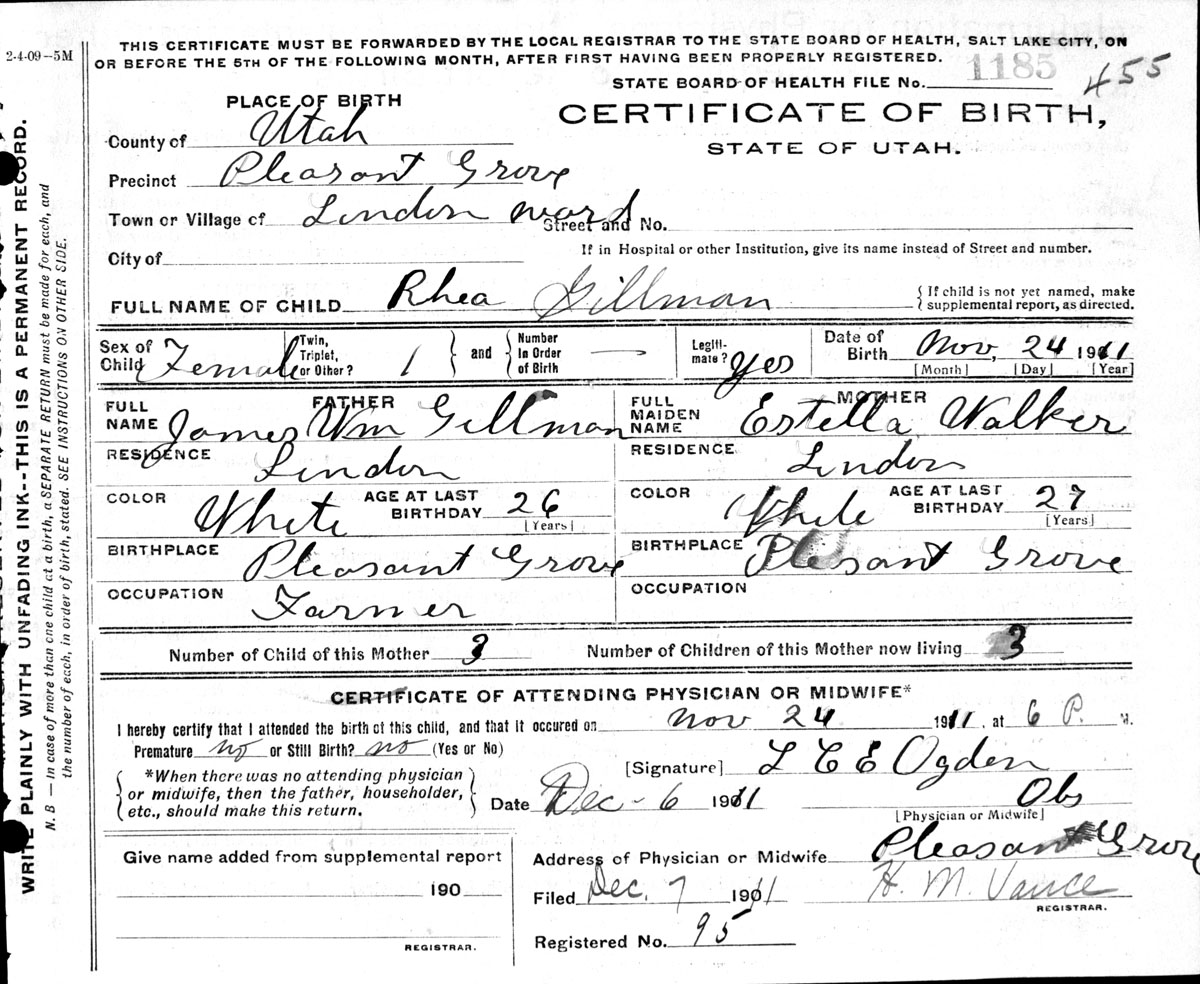 2-4-09--5M
THIS CERTIFICATE MUST BE FORWARDED BY THE LOCAL REGISTRAR TO THE STATE BOARD OF HEALTH, SALT LAKE CITY, ON
OR BEFORE THE 5TH OF THE FOLLOWING MONTH, AFTER FIRST HAVING BEEN PROPERLY REGISTERED.
STATE BOARD OF HEALTH FILE No. 1185 455
PLACE OF BIRTH
CERTIFICATE OF BIRTH,
STATE OF UTAH.
County of Utah
Precinct Pleasant Grove
Town or Village of Lindon ward Street and No.
If in Hospital or other Institution, give its name instead of Street and number.
City of
FULL NAME OF CHILD Rhea Gillman { If child is not yet named, make supplemental report, as directed.
Sex of Child Female Twin, Triplet, or Other? 1 } and { Number In Order of Birth — Legiti-mate? Yes Date of Birth Nov, 24 1911
[Month] [Day] [Year]
FATHER
FULL NAME James Wm Gillman
RESIDENCE Lindon
COLOR White AGE AT LAST BIRTHDAY 26
[Years]
BIRTHPLACE Pleasant Grove
OCCUPATION Farmer
MOTHER
FULL MAIDEN NAME Estella Walker
RESIDENCE Lindon
COLOR White AGE AT LAST BIRTHDAY 27
[Years]
BIRTHPLACE Plesant Grove
OCCUPATION
Number of Child of this Mother 3 Number of Children of this Mother now living 3
CERTIFICATE OF ATTENDING PHYSICIAN OR MIDWIFE*
I hereby certify that I attended the birth of this child, and that it occured on Nov 24 1911, at 6 P. M.
Premature no or Still Birth? no (Yes or No)
{ *When there was no attending physician
or midwife, then the father, householder,
etc., should make this return. }
[Signature] L C E Ogden
Date Dec - 6 1911 Obs
[Physician or Midwife]
Give name added from supplemental report
190
REGISTRAR.
Address of Physician or Midwife Pleasant Grove
Filed Dec. 7 1911 H. M. Vance
REGISTRAR.
Registered No. 95
WRITE PLAINLY WITH UNFADING INK--THIS IS A PERMANENT RECORD.
N. B — In case of more than one child at a birth, a SEPARATE RETURN must be made for each, and
the number of each, in order of birth, stated. SEE INSTRUCTIONS ON OTHER SIDE.